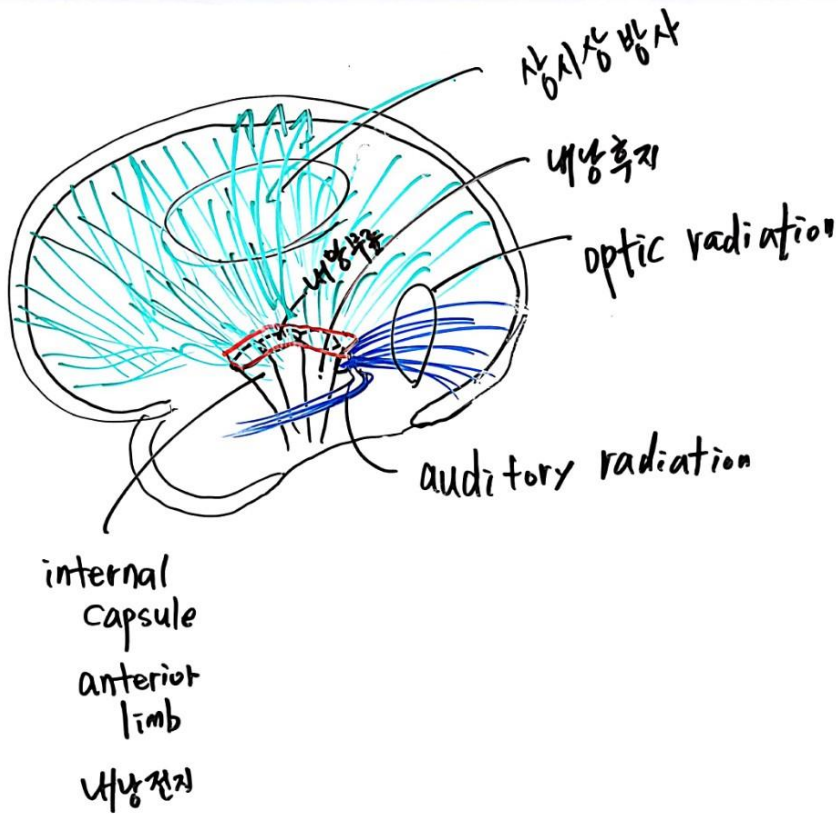 상시상 방사
내낭후지
optic radiation
내낭무릎
auditory radiation
internal
capsule
anterior
limb
내낭전지